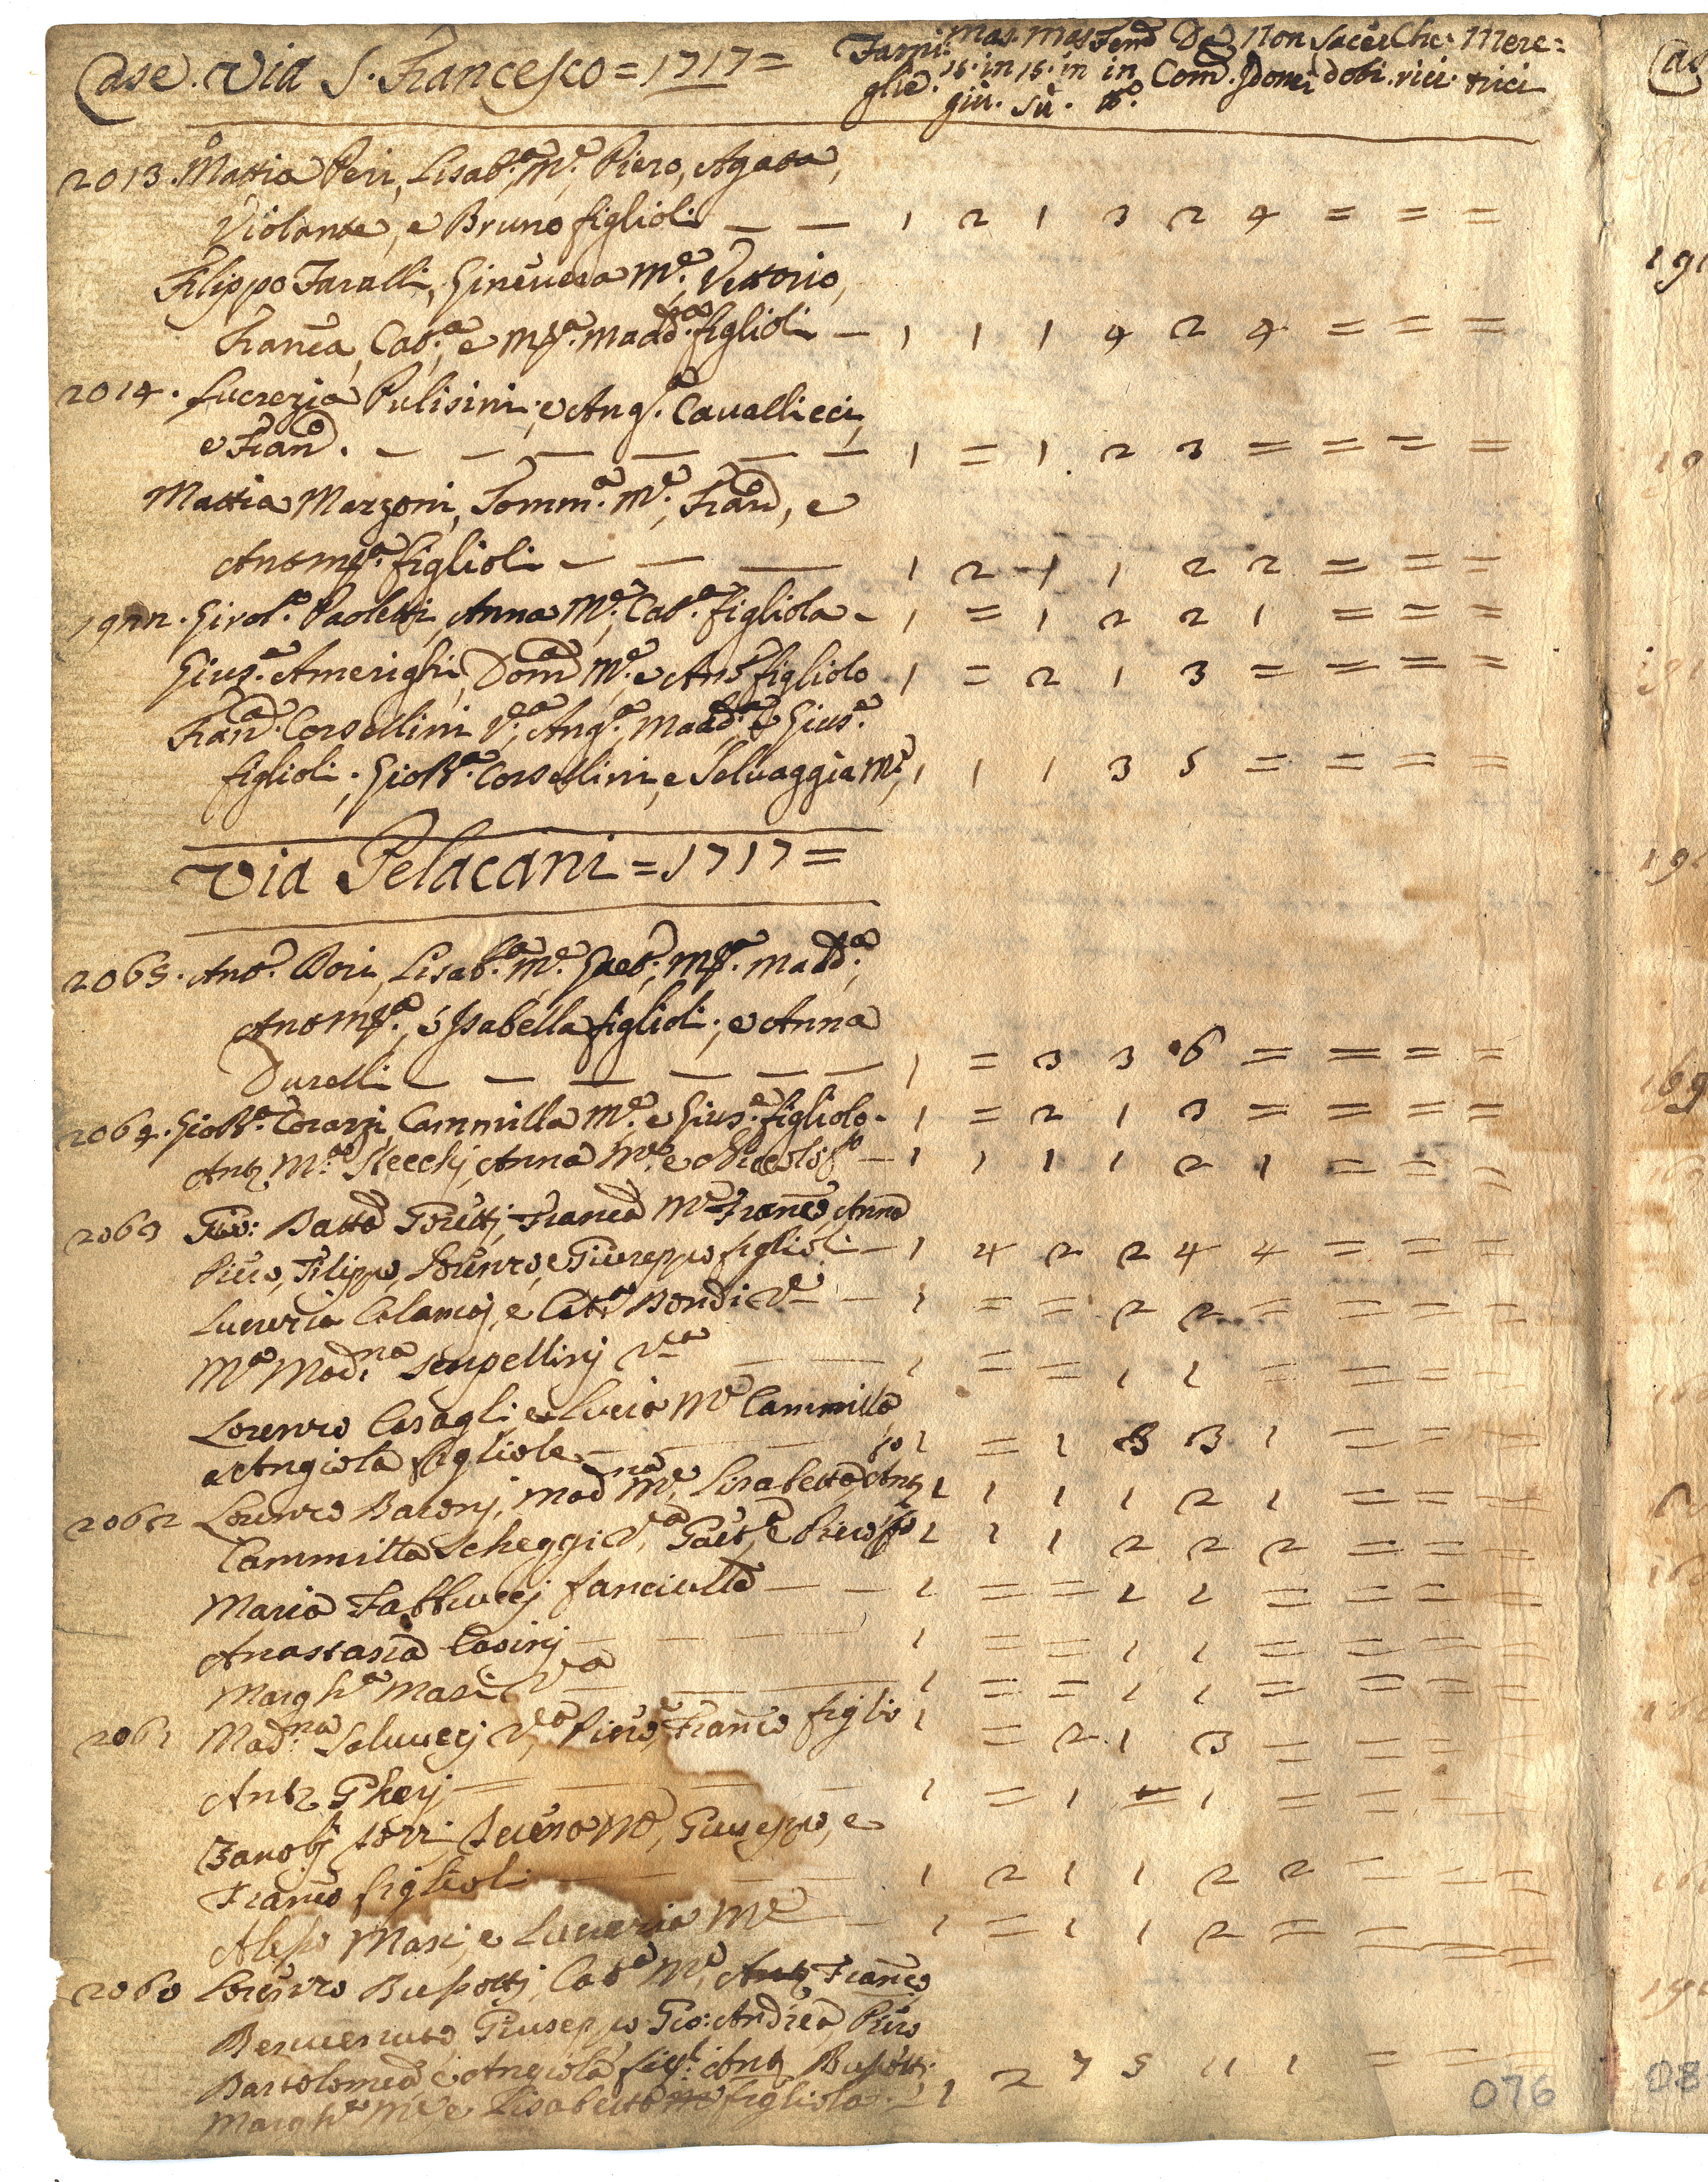 Case. Via S. Francesco = 1717 =
Fami: Mas. Mas. Fem.e Da Non Sacer Che- Mere=
glie. 15. in 15. in in Com. Idonei doti. rici. trici
giù. sù. tt.o
2013. Mattia Peri, Lisab.a M.e, Piero, Agata,
Violante, e Bruno figlioli — — 1 2 1 3 2 4 = = =
Filippo Taralli, Gineuera M.e, Vettorio,
Franca, Cat.a, e M.a Madd.a figlioli — 1 1 1 4 2 4 = = =
2014. Lucrezia Pulisini; e Ang.a Cavallicci,
e Fran.o — — — — — — 1 = 1. 2 3 = = = =
Mattia Marzoni, Tomm.a M.e, Fran.o, e
Ant.o M.a figlioli — — — 1 2 1 1 2 2 = = =
Girol.o Paoletti, Anna M.e, Cat.a figliola - 1 = 1 2 2 1 = = =
Gius.e Amerighi, Dom.a M.e e Ant.o figliolo - 1 = 2 1 3 = = = =
Fran.a Corsellini V.a, Ang.a, Madd.a e Gius.e
figlioli; Gio B.a Corsellini, e Seluaggia M.e, 1 1 1 3 5 = = = =
Via Pelacani = 1717 =
2065. Ant.o Bori, Lisab.a M.e Gaet.o, M.a Madd.a,
Ant.o M.a, e Isabella figlioli; e Anna
Durelli — — — — — — 1 = 3 3 6 = = = =
2064. Gio B.a Corazzi, Cammilla M.e e Gius.e figliolo - 1 = 2 1 3 = = = =
Ant.o M.a Stecchj, Anna M.e e Niccolò f.o — 1 1 1 1 2 1 = = =
2063 Gio: Batta Franca M.e Franco, Anna
Piero, Filippo, Lorenzo, e Giuseppe figlioli — 1 4 2 2 4 4 = = =
Lucrezia e Cat.a Bondi V.a — 1 = = 2 2 = = = =
M.a Mad.na V.a — — 1 = = 1 1 = = = =
Lorenzo Casagli e Lucia M.e Cammilla
e Angiola figliole — — — 1 = 1 3 3 1 = = =
2062 Lorenzo Baronj, Mad.na M.e, Lisabetta Ant.o f.o 1 1 1 1 2 1 = = =
Cammilla Scheggi V.a, Gaet.o, e Piero f.o 1 1 1 2 2 2 = = =
Maria fanciulla — — 1 = = 1 1 = = = =
Anastasia Casinj — — — — 1 = = 1 1 = = = =
Margh.a Masi V.a — — 1 = = 1 1 = = = =
2061 Mad.na Saluucci V.a, Piero, e Franco figli 1 = 2. 1 3 = = = =
Ant.o Gherj — — — — 1 = 1 = 1 = = = =
Zanobj M.e, Giuseppe, e
Franco figlioli — — — — 1 2 1 1 2 2 = = =
Aless.o Masi, e Lucrezia M.e — 1 = 1 1 2 = = = =
2060 Lorenzo Bussottj, Cat.a M.e, Ant.o Franco
Benuenuto, Giuseppe Gio: Andrea Piero
Bartolomeo, e Angiola figli: Ant.o Bussotti
Margh.a M.e e Lisabetta figliola. — 1 2 7 5 11 1 = = =
076